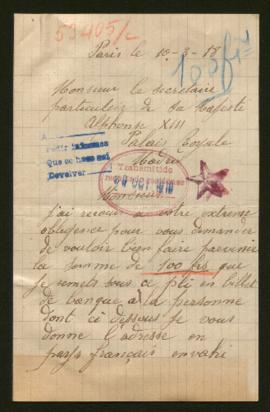 53405/c
Paris le 10-3-18
183 fid
Monsieur le secretaire
particulier de Sa Majesté
Alphonse XIII
Palais Royale
Madrid
Pedir informes
Que se hace aqui
Devolver
Transmitido
Monsieur
J'ai recours a votre extreme
obligence pour vous demander
de vouloir bien faire parvenir
la somme de 100 frs que
je remets sous ce pli en billet
de banque a la personne
dont ci dessous je vous
donne l'adresse en
pays français envahi